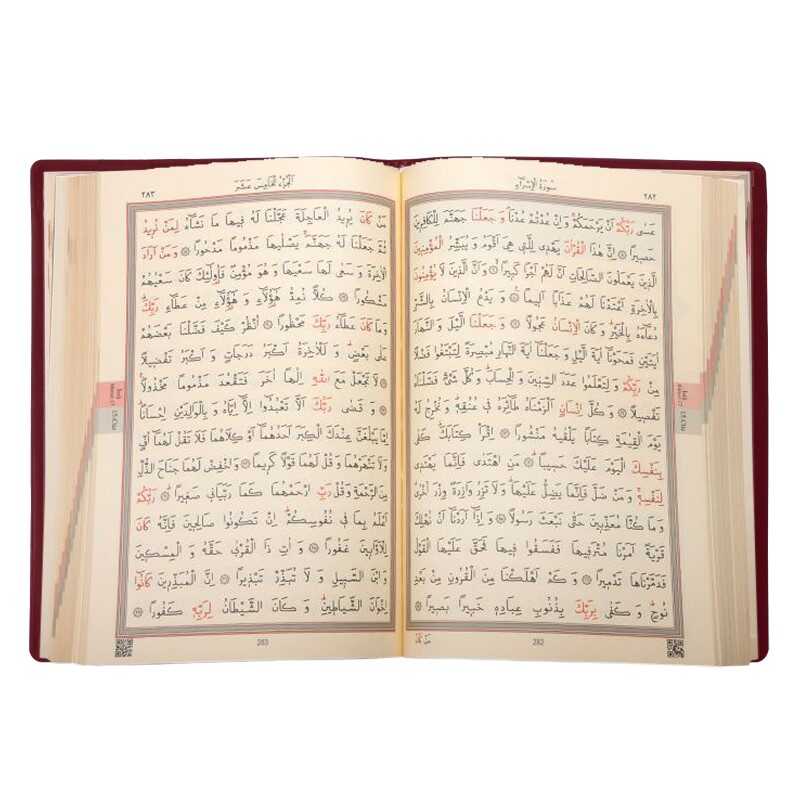 ٢٨٢
سورة الإسراء
عَسٰى رَبُّكُمْ اَنْ يَرْحَمَكُمْ وَ اِنْ عُدْتُمْ عُدْنَا وَ جَعَلْنَا جَهَنَّمَ لِلْكَافِرٖينَ
حَصٖيرًا ۞ اِنَّ هٰذَا الْقُرْاٰنَ يَهْدٖى لِلَّتٖى هِيَ اَقْوَمُ وَ يُبَشِّرُ الْمُؤْمِنٖينَ
الَّذٖينَ يَعْمَلُونَ الصَّالِحَاتِ اَنَّ لَهُمْ اَجْرًا كَبٖيرًا ۞ وَ اَنَّ الَّذٖينَ لَا يُؤْمِنُونَ
بِالْاٰخِرَةِ اَعْتَدْنَا لَهُمْ عَذَابًا اَلٖيمًا ۞ وَ يَدْعُ الْاِنْسَانُ بِالشَّرِّ
دُعَاءَهُ بِالْخَيْرِ وَ كَانَ الْاِنْسَانُ عَجُولًا ۞ وَ جَعَلْنَا الَّيْلَ وَ النَّهَارَ
اٰيَتَيْنِ فَمَحَوْنَا اٰيَةَ الَّيْلِ وَ جَعَلْنَا اٰيَةَ النَّهَارِ مُبْصِرَةً لِتَبْتَغُوا فَضْلًا
مِنْ رَبِّكُمْ وَ لِتَعْلَمُوا عَدَدَ السِّنٖينَ وَ الْحِسَابَ وَ كُلَّ شَيْءٍ فَصَّلْنَاهُ
تَفْصٖيلًا ۞ وَ كُلَّ اِنْسَانٍ اَلْزَمْنَاهُ طَائِرَهُ فٖى عُنُقِهٖ وَ نُخْرِجُ لَهُ
يَوْمَ الْقِيٰمَةِ كِتَابًا يَلْقٰيهُ مَنْشُورًا ۞ اِقْرَأْ كِتَابَكَ كَفٰى
بِنَفْسِكَ الْيَوْمَ عَلَيْكَ حَسٖيبًا ۞ مَنِ اهْتَدٰى فَاِنَّمَا يَهْتَدٖى
لِنَفْسِهٖ وَ مَنْ ضَلَّ فَاِنَّمَا يَضِلُّ عَلَيْهَا وَ لَا تَزِرُ وَازِرَةٌ وِزْرَ اُخْرٰى
وَ مَا كُنَّا مُعَذِّبٖينَ حَتّٰى نَبْعَثَ رَسُولًا ۞ وَ اِذَا اَرَدْنَا اَنْ نُهْلِكَ
قَرْيَةً اَمَرْنَا مُتْرَفٖيهَا فَفَسَقُوا فٖيهَا فَحَقَّ عَلَيْهَا الْقَوْلُ
فَدَمَّرْنَاهَا تَدْمٖيرًا ۞ وَ كَمْ اَهْلَكْنَا مِنَ الْقُرُونِ مِنْ بَعْدِ
نُوحٍ وَ كَفٰى بِرَبِّكَ بِذُنُوبِ عِبَادِهٖ خَبٖيرًا بَصٖيرًا ۞
282
مَنْ كَانَ
الجزء الخامس عشر
٢٨٣
مَنْ كَانَ يُرٖيدُ الْعَاجِلَةَ عَجَّلْنَا لَهُ فٖيهَا مَا نَشَاءُ لِمَنْ نُرٖيدُ
ثُمَّ جَعَلْنَا لَهُ جَهَنَّمَ يَصْلٰيهَا مَذْمُومًا مَدْحُورًا ۞ وَ مَنْ اَرَادَ
الْاٰخِرَةَ وَ سَعٰى لَهَا سَعْيَهَا وَ هُوَ مُؤْمِنٌ فَاُولٰئِكَ كَانَ سَعْيُهُمْ
مَشْكُورًا ۞ كُلًّا نُمِدُّ هٰؤُلَاءِ وَ هٰؤُلَاءِ مِنْ عَطَاءِ رَبِّكَ
وَ مَا كَانَ عَطَاءُ رَبِّكَ مَحْظُورًا ۞ اُنْظُرْ كَيْفَ فَضَّلْنَا بَعْضَهُمْ
عَلٰى بَعْضٍ وَ لَلْاٰخِرَةُ اَكْبَرُ دَرَجَاتٍ وَ اَكْبَرُ تَفْضٖيلًا
۞ لَا تَجْعَلْ مَعَ اللّٰهِ اِلٰهًا اٰخَرَ فَتَقْعُدَ مَذْمُومًا مَخْذُولًا
۞ وَ قَضٰى رَبُّكَ اَلَّا تَعْبُدُوا اِلَّا اِيَّاهُ وَ بِالْوَالِدَيْنِ اِحْسَانًا
اِمَّا يَبْلُغَنَّ عِنْدَكَ الْكِبَرَ اَحَدُهُمَا اَوْ كِلَاهُمَا فَلَا تَقُلْ لَهُمَا اُفٍّ
وَ لَا تَنْهَرْهُمَا وَ قُلْ لَهُمَا قَوْلًا كَرٖيمًا ۞ وَ اخْفِضْ لَهُمَا جَنَاحَ الذُّلِّ
مِنَ الرَّحْمَةِ وَ قُلْ رَبِّ ارْحَمْهُمَا كَمَا رَبَّيَانٖى صَغٖيرًا ۞ رَبُّكُمْ
اَعْلَمُ بِمَا فٖى نُفُوسِكُمْ اِنْ تَكُونُوا صَالِحٖينَ فَاِنَّهُ كَانَ
لِلْاَوَّابٖينَ غَفُورًا ۞ وَ اٰتِ ذَا الْقُرْبٰى حَقَّهُ وَ الْمِسْكٖينَ
وَ ابْنَ السَّبٖيلِ وَ لَا تُبَذِّرْ تَبْذٖيرًا ۞ اِنَّ الْمُبَذِّرٖينَ كَانُوا
اِخْوَانَ الشَّيَاطٖينِ وَ كَانَ الشَّيْطَانُ لِرَبِّهٖ كَفُورًا ۞
283